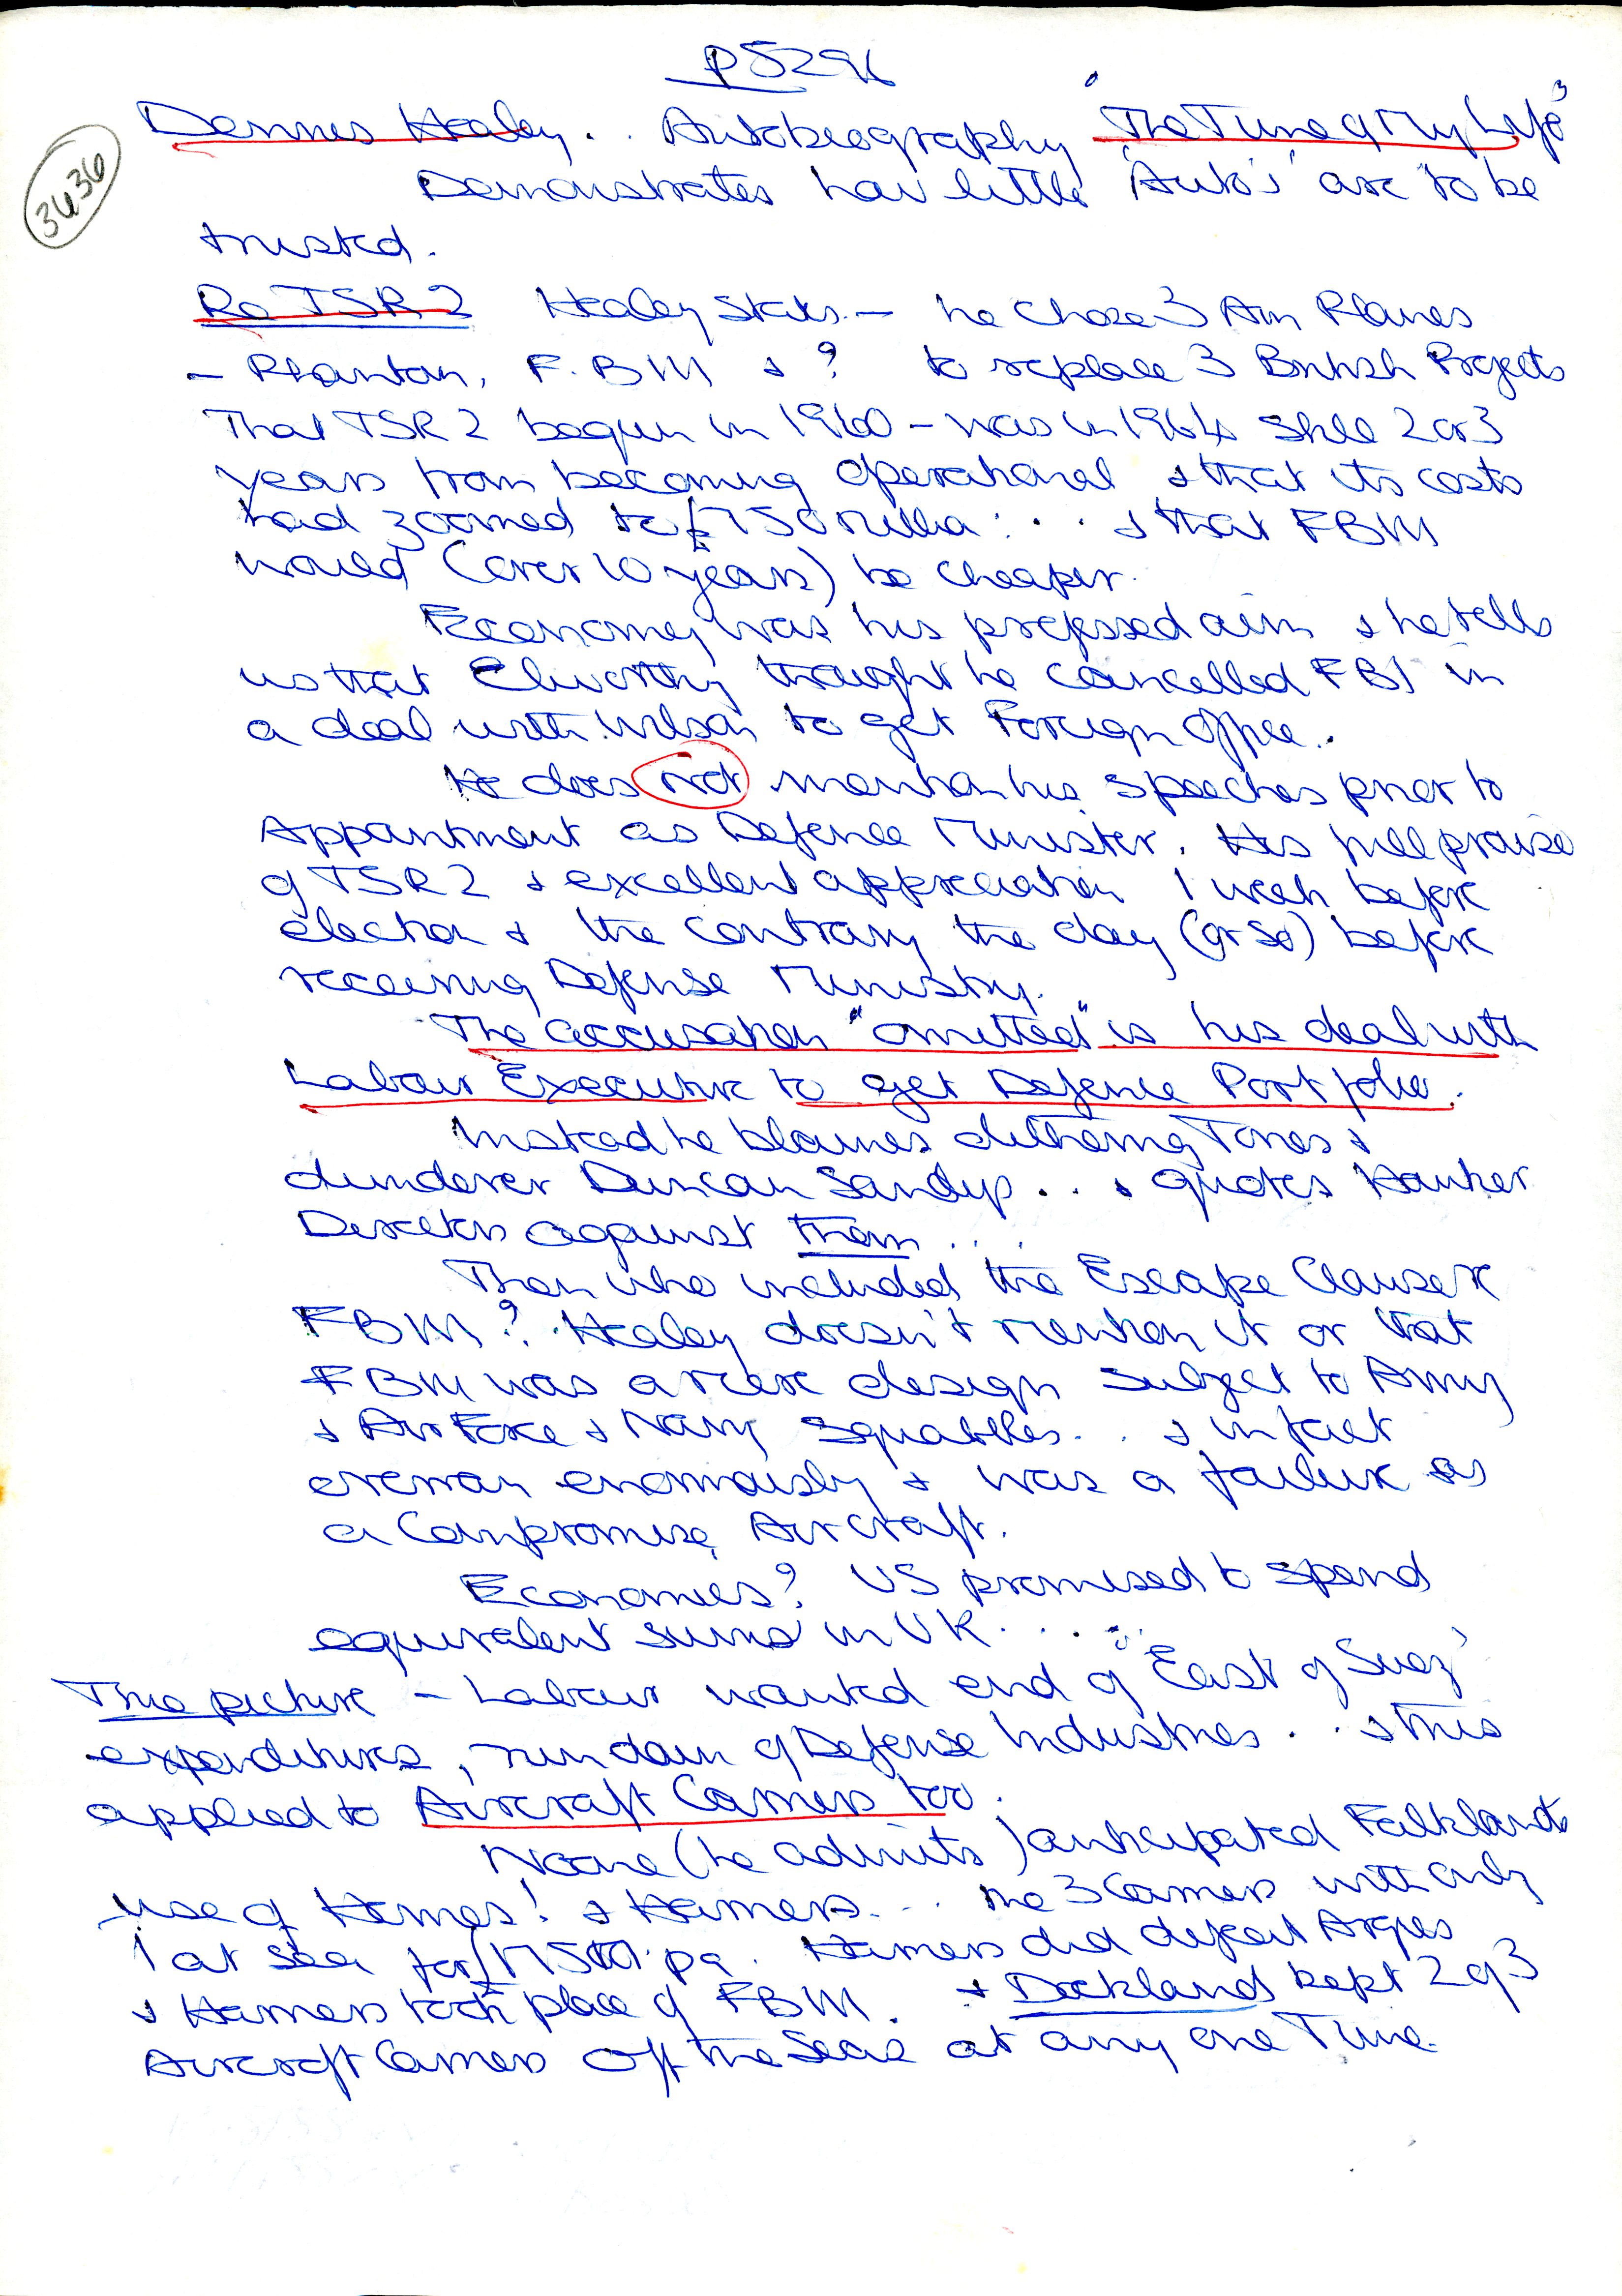 P5296
3636
Dennis Healey . . Autobiography 'The Time of My Life'
Demonstrates how little 'Auto's' are to be
trusted.
Re TSR2 Healey States - he chose 3 Am Planes
- Phantom, F.BM & ? to replace 3 British Projects
That TSR2 begun in 1960 - was in 1964 still 2 or 3
years from becoming operational & that its costs
had zoomed to £750 million . . . & that FBM
would (over 10 years) be cheaper.
Economy was his professed aim & he tells
us that Elworthy thought he cancelled FB1 in
a deal with Wilson to get Foreign Office..
He does not mention his speeches prior to
Appointment as Defence Minister. His full praise
of TSR2 & excellent appreciation 1 week before
election & the contrary the day (or so) before
receiving Defense Ministry.
The accusation "omitted" is his deal with
Labour Executive to get Defence Portfolio.
Instead he blames dithering Tories &
dunderer Duncan Sandys . . & quotes Hawker
Directors against them . . .
Then who included the Escape Clause re
FBM? Healey doesn't mention it or that
FBM was a mere design subject to Army
& Air Force & Navy squabbles . . & in fact
overran enormously & was a failure as
a Compromise Aircraft.
Economies? US promised to spend
equivalent sums in UK . . . . .
True picture - Labour wanted end of 'East of Suez'
expenditures, run down of Defense Industries . . & this
applied to Aircraft Carriers too.
Noone (he admits) anticipated Falklands
use of Hermes! & Harriers . . . The 3 Carriers with only
1 at sea for £175m pa. Harriers did defeat Argies
& Harriers took place of FBM. & Dockland kept 2 of 3
Aircraft Carriers off the Seas at any one Time.